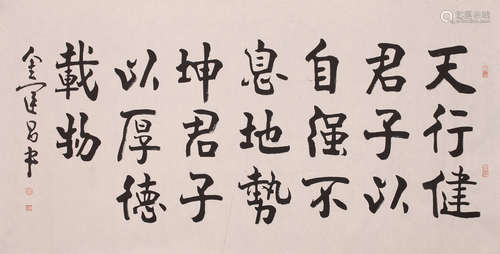 天行健
君子以
自强不
息地勢
坤君子
以厚德
載物
金運昌書